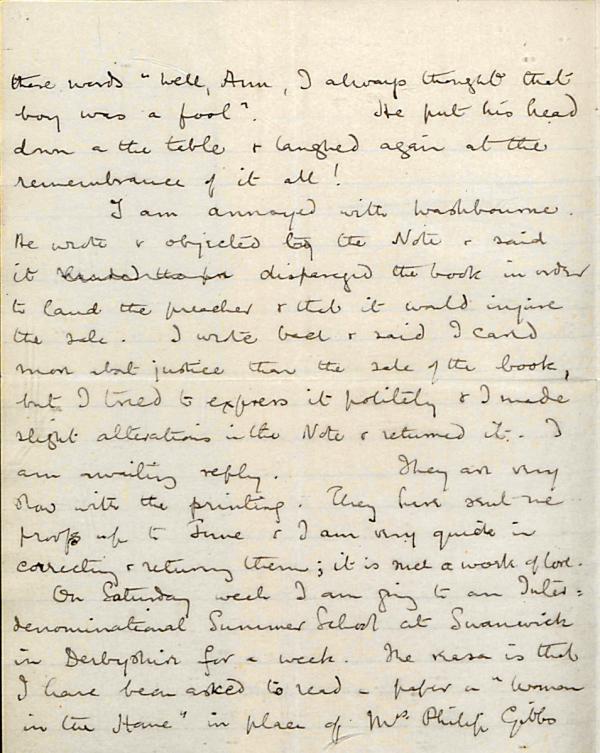 these words "Well, Ann, I always thought that
boy was a fool". He put his head
down on the table & laughed again at the
remembrance of it all!
I am annoyed with Washbourne.
He wrote & objected to the Note & said
it disparaged the book in order
to laud the preacher & that it would injure
the sale. I wrote back & said I cared
more about justice than the sale of the book,
but I tried to express it politely & I made
slight alterations in the Note & returned it. I
am awaiting reply. They are very
slow with the printing. They have sent me
proofs up to June & I am very quick in
correcting & returning them; it is such a work of love.
On Saturday week I am going to an Inter=
denominational Summer School at Swanwick
in Derbyshire for a week. The reason is that
I have been asked to read a paper on "Woman
in the Home" in place of Mrs Philip Gibbs